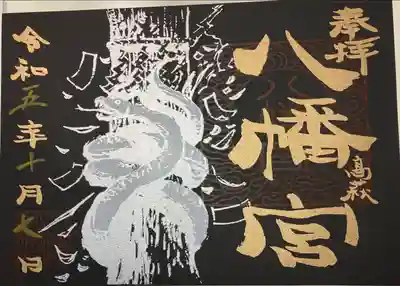 奉拝
八幡宮
令和五年十月七日